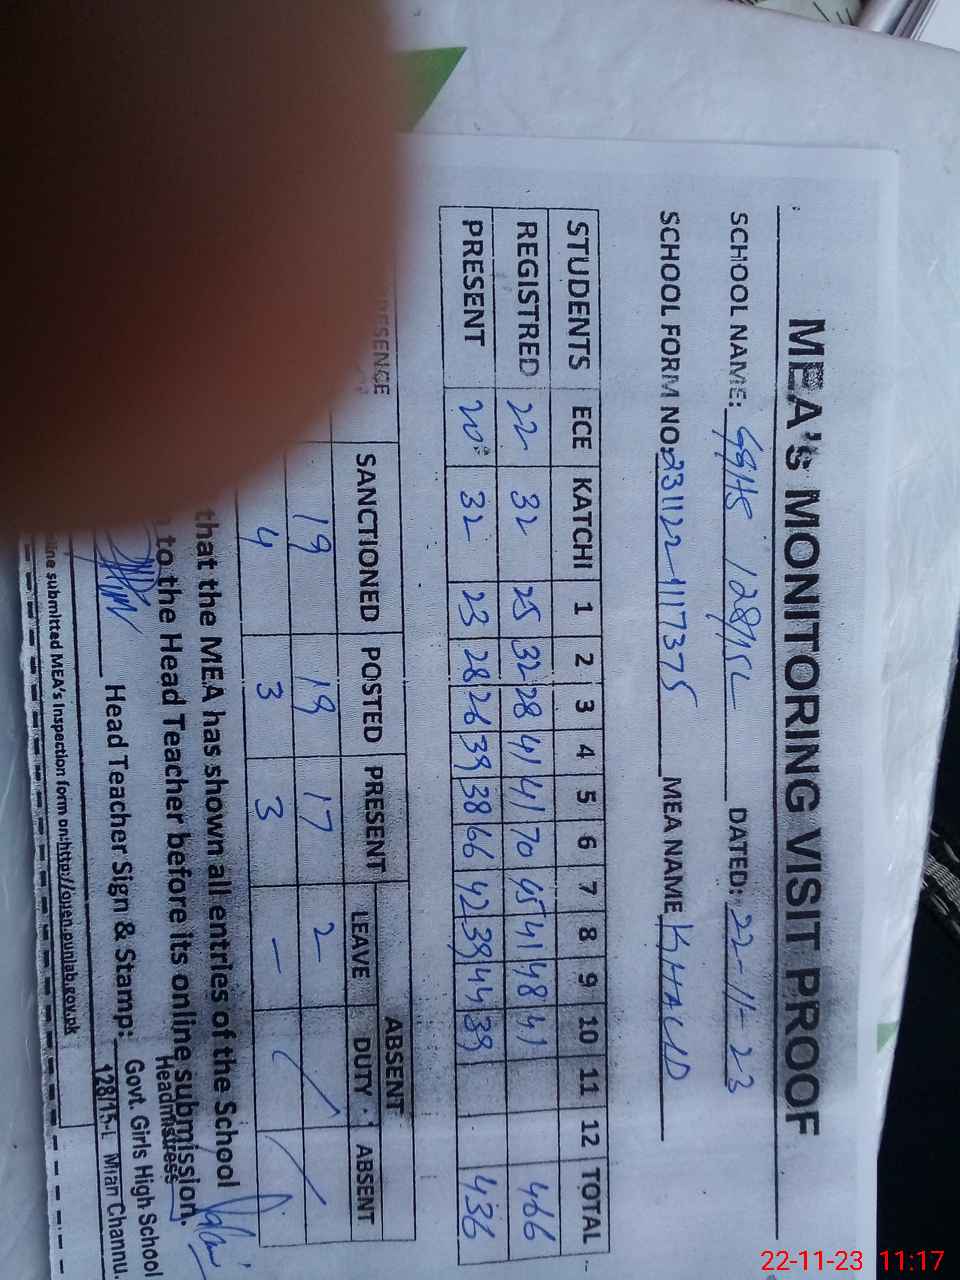 MEA's MONITORING VISIT PROOF
SCHOOL NAME: GGHS 128/15L DATED: 22-11-23
SCHOOL FORM NO: MEA NAME KHALID
STUDENTS ECE KATCHI 1 2 3 4 5 6 7 8 9 10 11 12 TOTAL
REGISTRED 22 32 25 32 28 41 41 70 45 41 48 41 466
PRESENT 20 32 23 28 26 39 38 66 42 39 44 39 436
ABSENT
SANCTIONED POSTED PRESENT LEAVE DUTY ABSENT
19 19 17 2
4 3 3 —
that the MEA has shown all entries of the School
to the Head Teacher before its online submission.
Head Teacher Sign & Stamp:
Headmistress
Govt. Girls High School
128/15-L Mian Channu.
line submitted MEA's Inspection form on:http://open.punjab.gov.pk
22-11-23 11:17